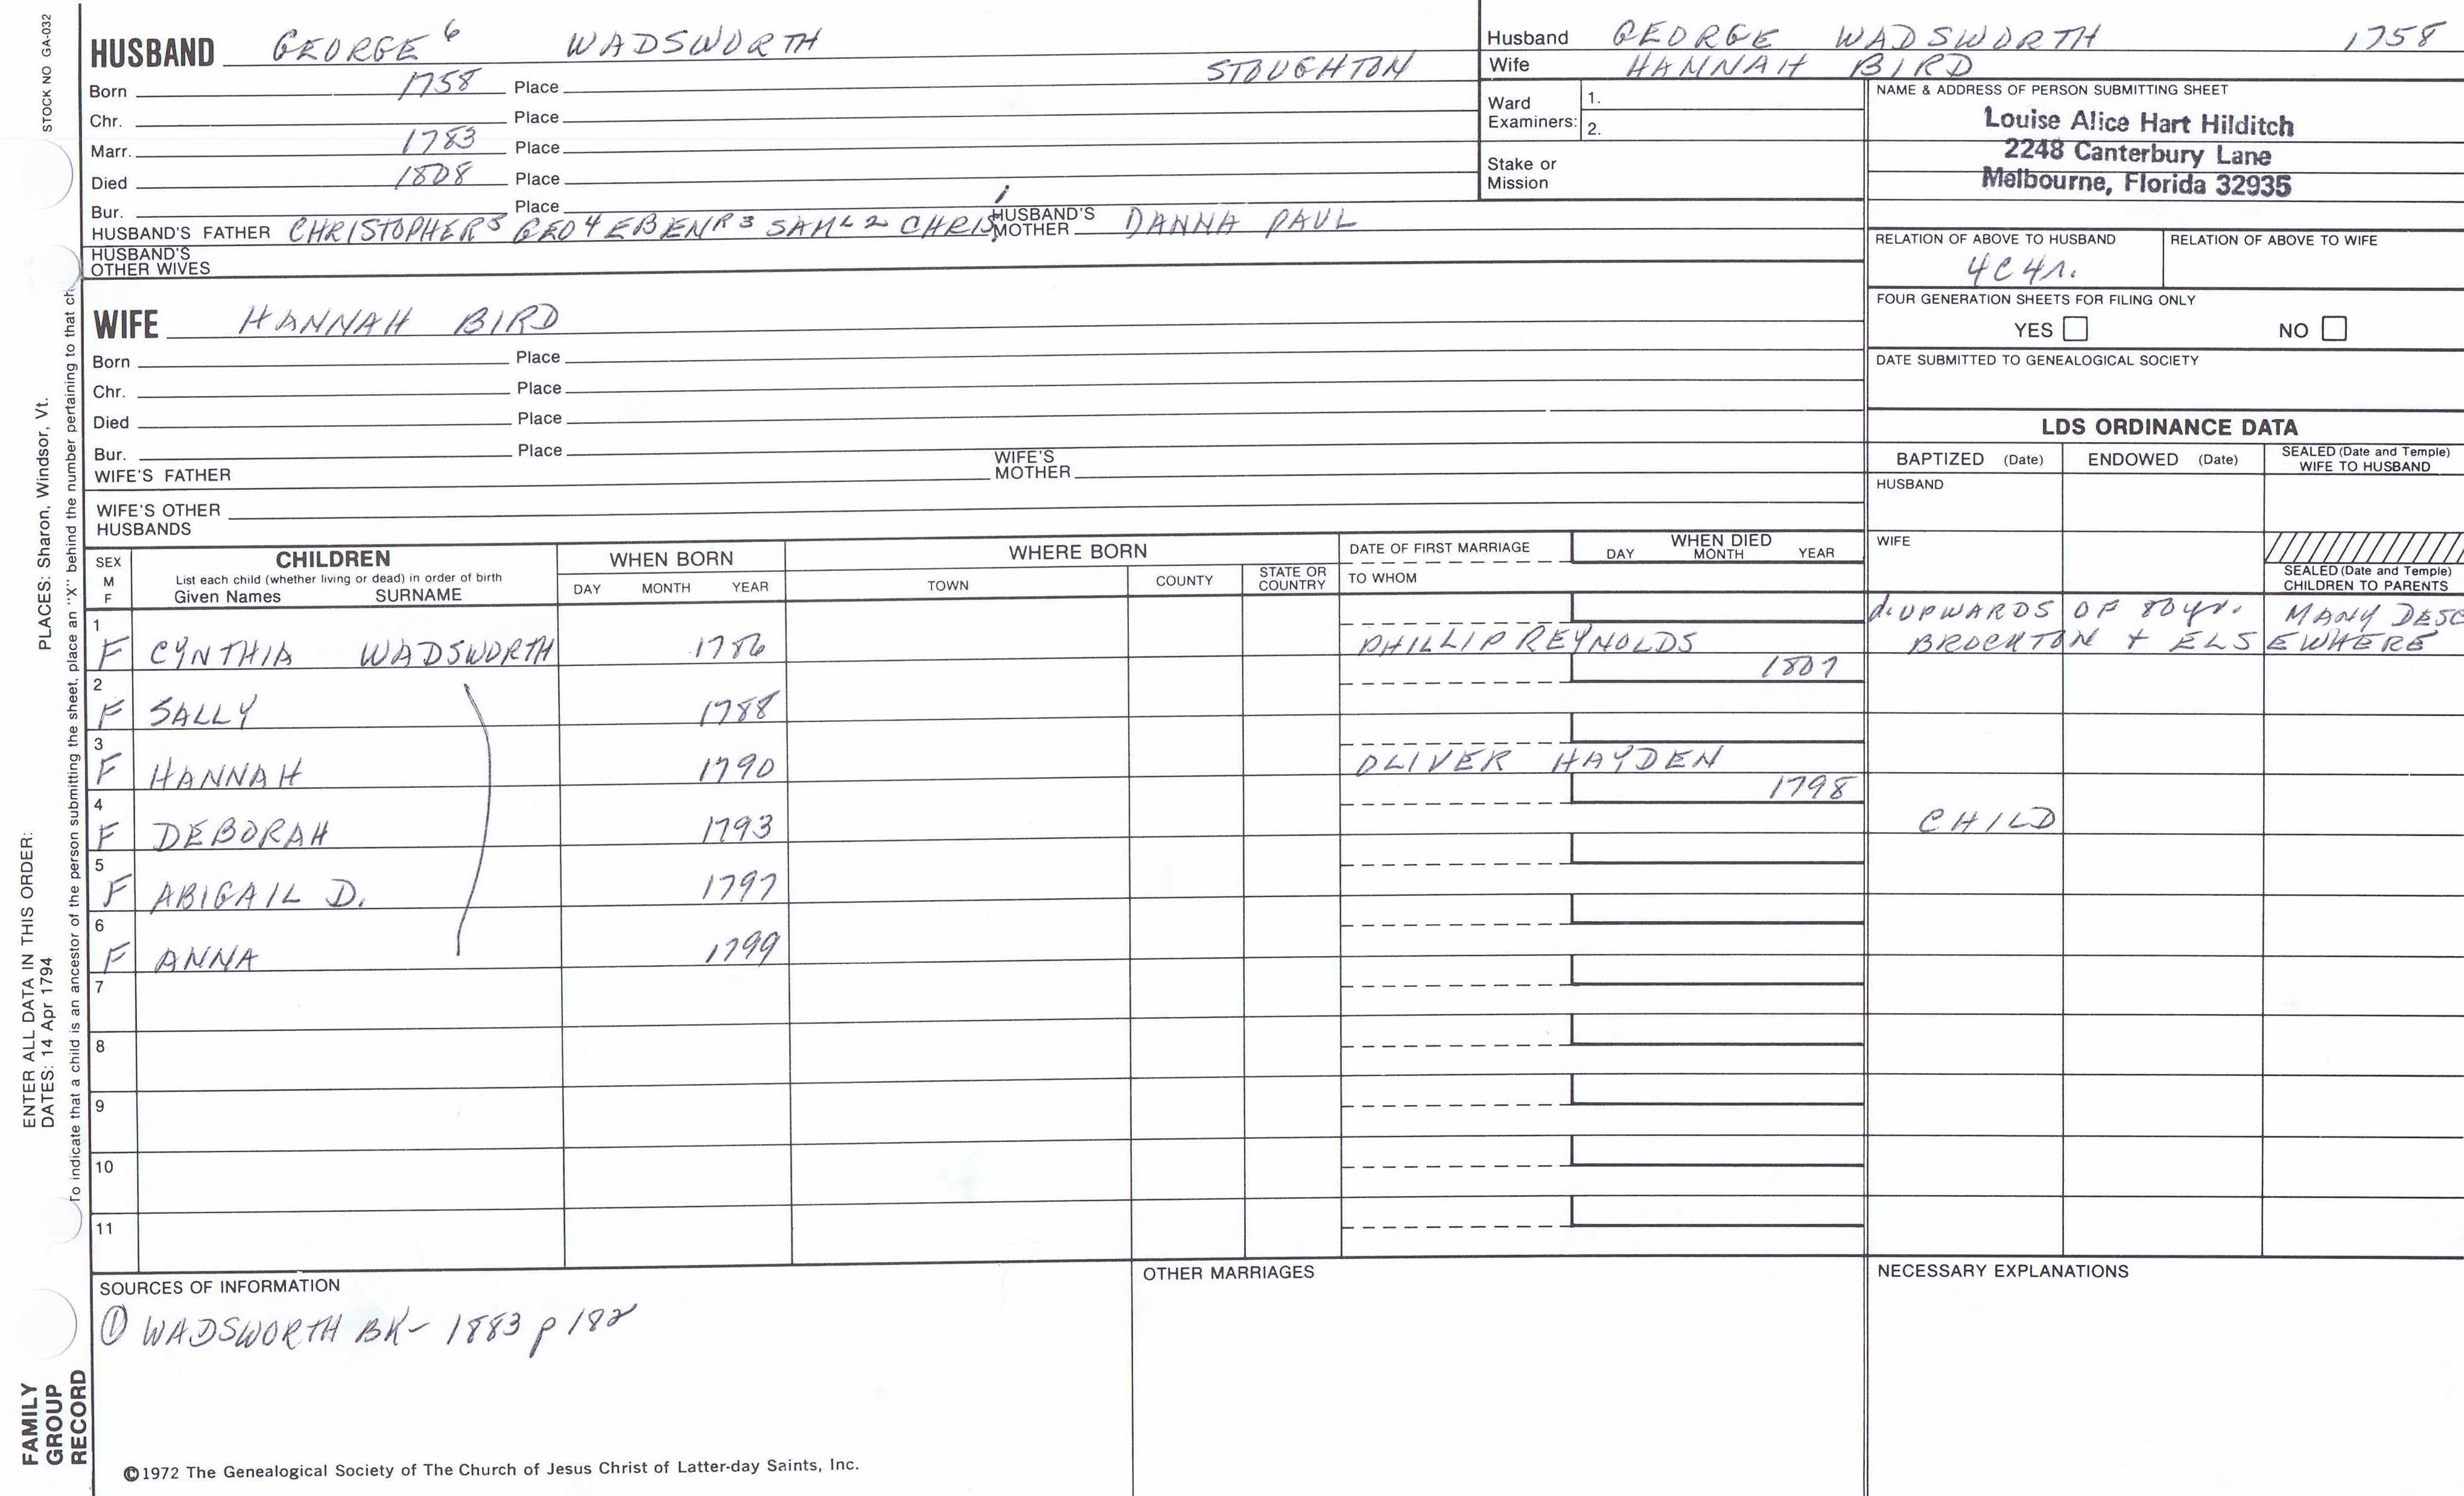 STOCK NO GA-032
PLACES: Sharon, Windsor, Vt.
ENTER ALL DATA IN THIS ORDER:
DATES: 14 Apr 1794
To indicate that a child is an ancestor of the person submitting the sheet, place an "X" behind the number pertaining to that ch
FAMILY
GROUP
RECORD
HUSBAND GEORGE 6 WADSWORTH
Born 1758 Place STOUGHTON
Chr. Place
Marr. 1783 Place
Died 1808 Place
Bur. Place
HUSBAND'S FATHER CHRISTOPHER 5 GEO 4 EBENR 3 SAML 2 CHRIS 1 HUSBAND'S MOTHER DANNA PAUL
HUSBAND'S
OTHER WIVES
WIFE HANNAH BIRD
Born Place
Chr. Place
Died Place
Bur. Place
WIFE'S FATHER WIFE'S MOTHER
WIFE'S OTHER
HUSBANDS
Husband GEORGE WADSWORTH 1758
Wife HANNAH BIRD
Ward
Examiners:
1.
2.
Stake or
Mission
NAME & ADDRESS OF PERSON SUBMITTING SHEET
Louise Alice Hart Hilditch
2248 Canterbury Lane
Melbourne, Florida 32935
RELATION OF ABOVE TO HUSBAND RELATION OF ABOVE TO WIFE
4C4r.
FOUR GENERATION SHEETS FOR FILING ONLY
YES NO
DATE SUBMITTED TO GENEALOGICAL SOCIETY
LDS ORDINANCE DATA
BAPTIZED (Date) ENDOWED (Date) SEALED (Date and Temple)
WIFE TO HUSBAND
HUSBAND
WIFE
SEALED (Date and Temple)
CHILDREN TO PARENTS
SEX
M
F
CHILDREN
List each child (whether living or dead) in order of birth
Given Names SURNAME
WHEN BORN
DAY MONTH YEAR
WHERE BORN
TOWN COUNTY STATE OR
COUNTRY
DATE OF FIRST MARRIAGE
TO WHOM
WHEN DIED
DAY MONTH YEAR
1 d. UPWARDS OF 80 yr. MANY DESC
F CYNTHIA WADSWORTH 1786 PHILLIP REYNOLDS BROCKTON + ELSEWHERE
2 1807
F SALLY 1788
3
F HANNAH 1790 OLIVER HAYDEN
4 1798
F DEBORAH 1793 CHILD
5
F ABIGAIL D. 1797
6
F ANNA 1799
7
8
9
10
11
SOURCES OF INFORMATION
① WADSWORTH BK- 1883 p 182
OTHER MARRIAGES
NECESSARY EXPLANATIONS
©1972 The Genealogical Society of The Church of Jesus Christ of Latter-day Saints, Inc.